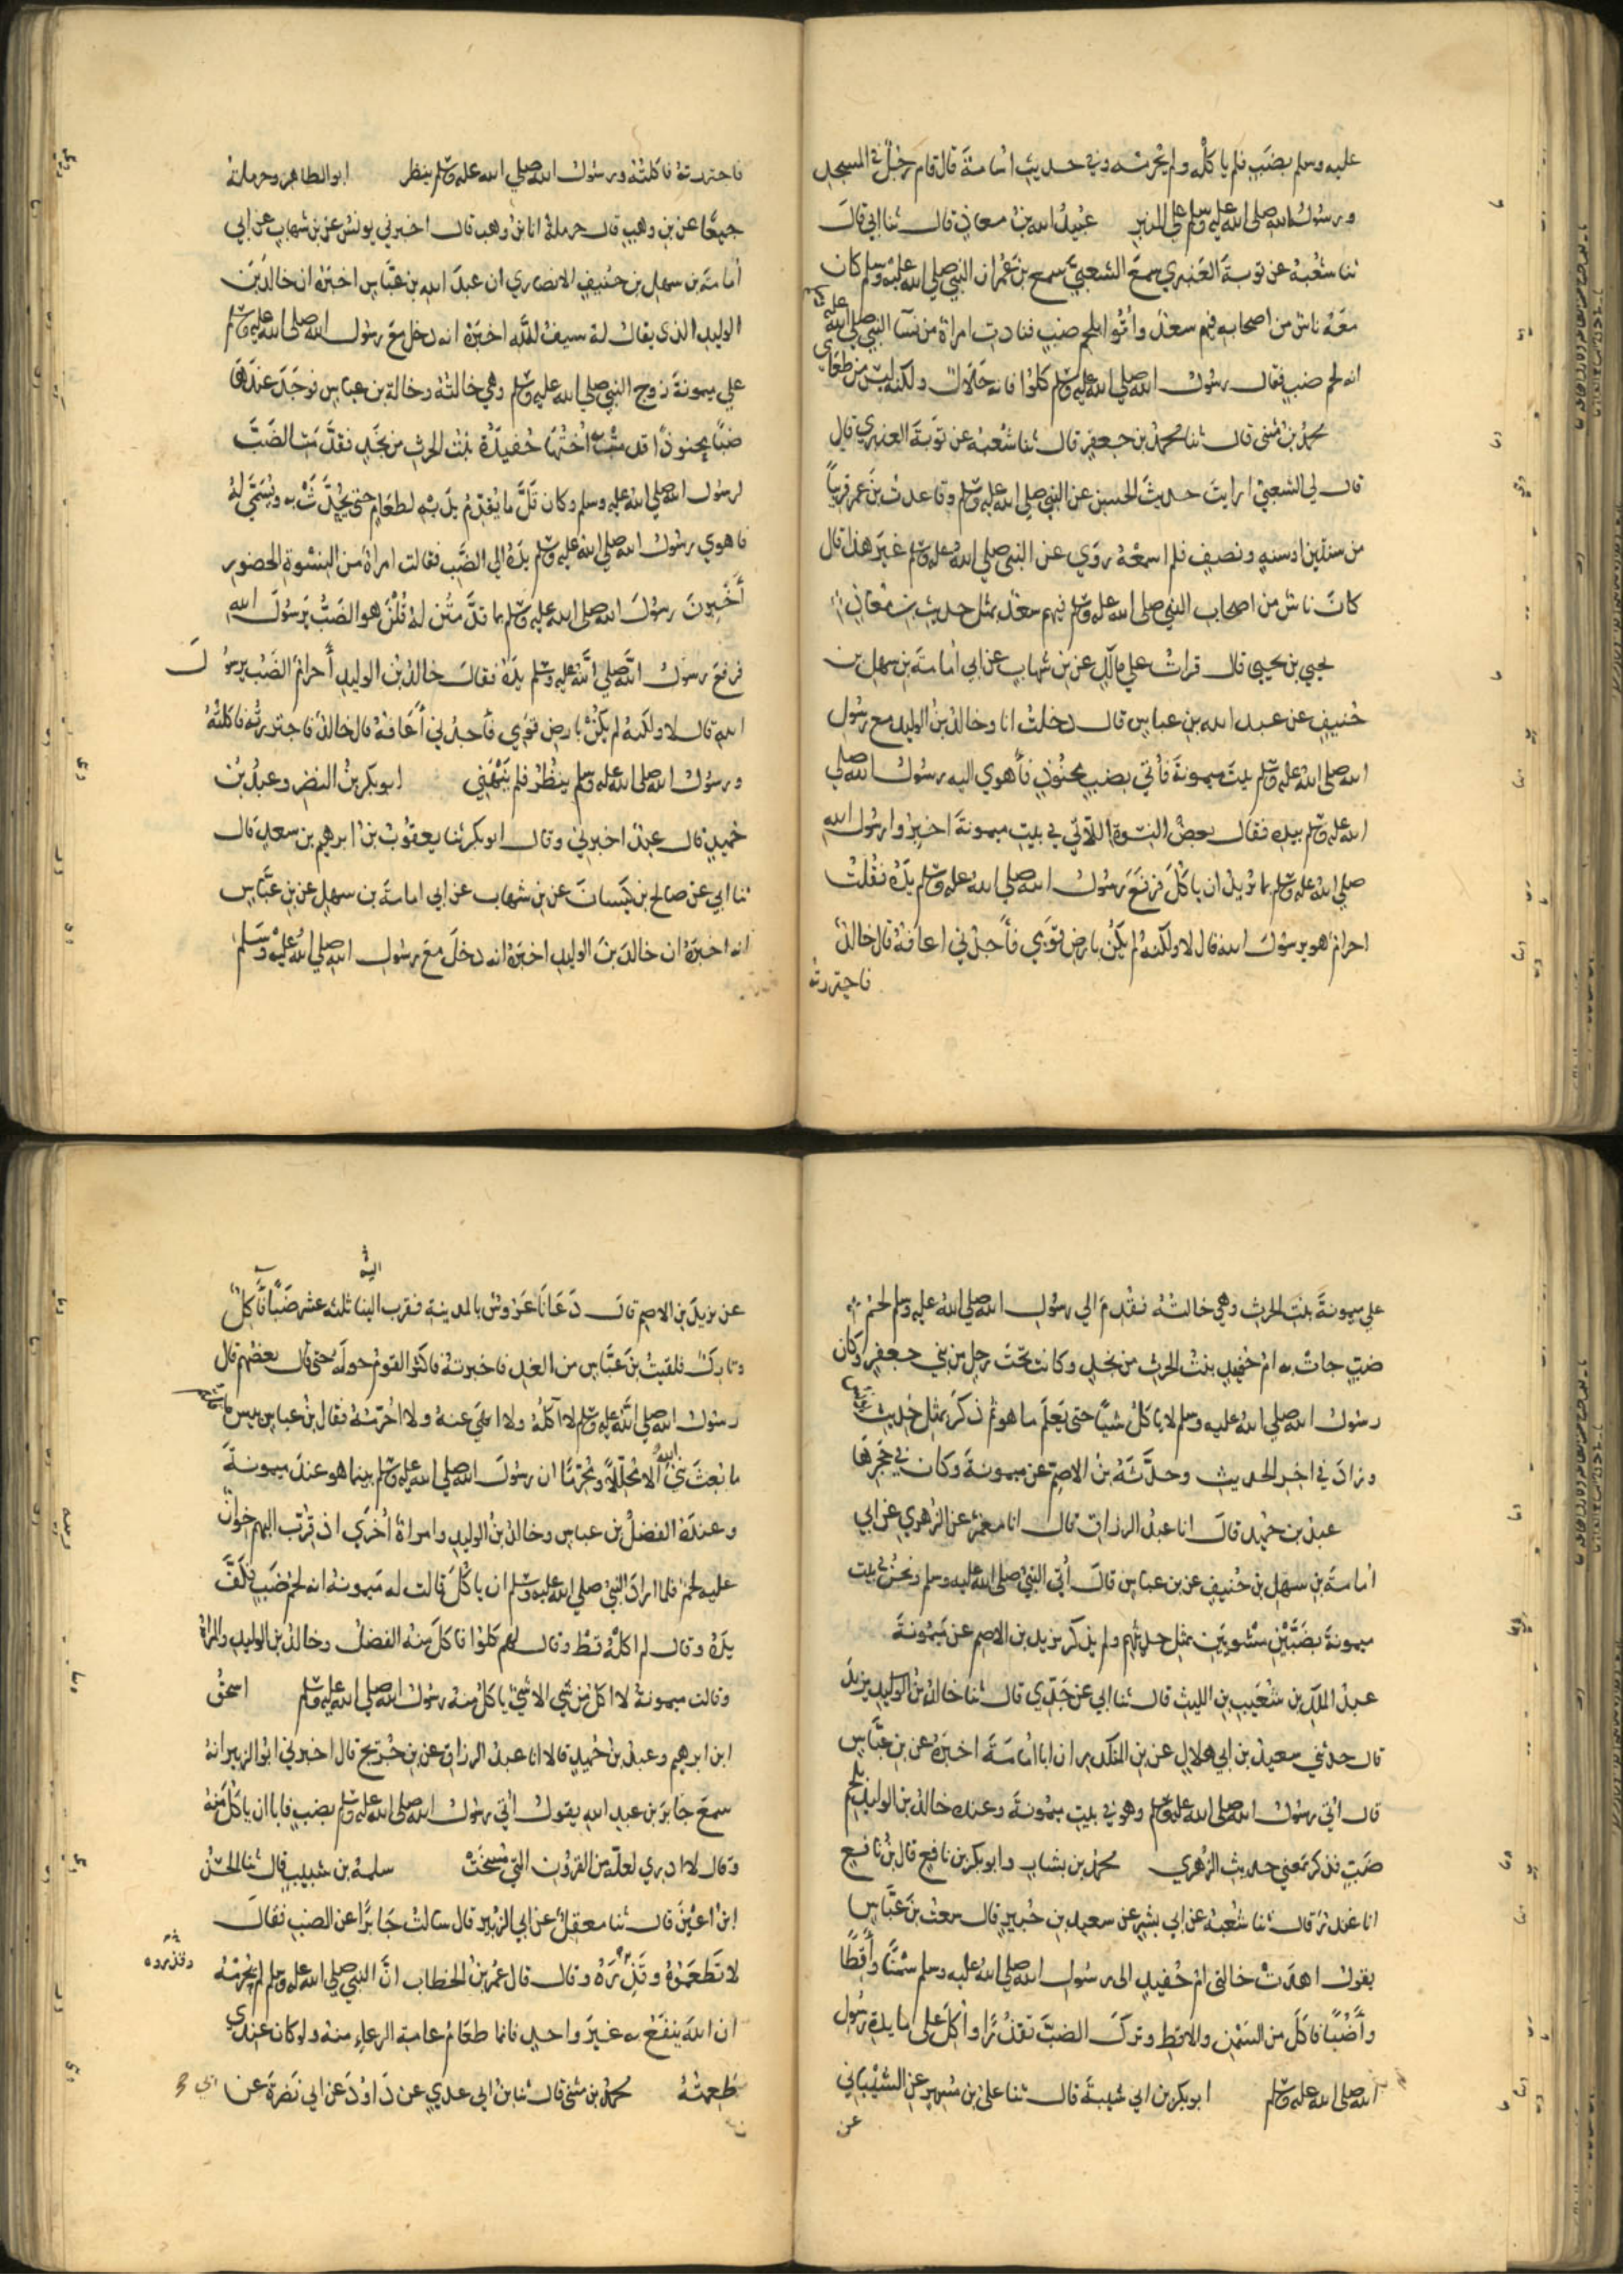 عليه وسلم بضب فلم ياكله ولم يحرمه وفي حديث اسامة قال قام رجل في المسجد
ورسول الله صلى الله عليه وسلم على المنبر عبيد الله بن معاذ قال ثنا ابي قال
ثنا شعبة عن توبة العنبري سمع الشعبي سمع بن عمر ان النبي صلى الله عليه وسلم كان
معه ناس من اصحابه فيهم سعد واتوا بلحم ضب فنادت امراة من نسا النبي صلى الله عليه وسلم
انه لحم ضب فقال رسول الله صلى الله عليه وسلم كلوا فانه حلال ولكنه ليس من طعامي
محمد بن مثنى قال ثنا محمد بن جعفر قال ثنا شعبة عن توبة العنبري قال
قال لي الشعبي ارايت حديث الحسن عن النبي صلى الله عليه وسلم وقاعدت بن عمر قريبا
من سنتين او سنة ونصف فلم اسمعه روي عن النبي صلى الله عليه وسلم غير هذا قال
كان ناس من اصحاب النبي صلى الله عليه وسلم فيهم سعد بمثل حديث بن معاذ
يحيى بن يحيى قال قرات علي مالك عن بن شهاب عن ابي امامة بن سهل بن
حنيف عن عبد الله بن عباس قال دخلت انا وخالد بن الوليد مع رسول
الله صلى الله عليه وسلم بيت ميمونة فأتي بضب محنوذ فأهوي اليه رسول الله صلى
الله عليه وسلم بيده فقال بعض النسوة اللاتي في بيت ميمونة اخبروا رسول الله
صلى الله عليه وسلم بما يريد ان ياكل فرفع رسول الله صلى الله عليه وسلم يده فقلت
احرام هو يرسول الله قال لا ولكنه لم يكن بارض قومي فأجدني اعافه قال خالد
فاجتررته
فاجتررته فاكلته ورسول الله صلى الله عليه وسلم ينظر ابو الطاهر وحرملة
جميعا عن بن وهب قال حرملة انا بن وهب قال اخبرني يونس عن بن شهاب عن ابي
أمامة بن سهل بن حنيف الانصاري ان عبد الله بن عباس اخبره ان خالد بن
الوليد الذي يقال له سيف الله اخبره انه دخل مع رسول الله صلى الله عليه وسلم
علي ميمونة زوج النبي صلى الله عليه وسلم وهي خالته وخالة بن عباس فوجد عندها
ضبا محنوذا قدمت به أختها حفيدة بنت الحرث من نجد فقدمت الضب
لرسول الله صلى الله عليه وسلم وكان قل ما يقدم يديه لطعام حتى يحدث به ويسمى له
فاهوي رسول الله صلى الله عليه وسلم يده الي الضب فقالت امراة من النسوة الحضور
أخبرن رسول الله صلى الله عليه وسلم بما قدمتن له قلن هو الضب يرسول الله
فرفع رسول الله صلى الله عليه وسلم يده فقال خالد بن الوليد أحرام الضب يرسول
الله قال لا ولكنه لم يكن بارض قومي فأجدني أعافه قال خالد فاجتررته فاكلته
ورسول الله صلى الله عليه وسلم ينظر فلم ينهني ابو بكر بن النضر وعبد بن
حميد قال عبد اخبرني وقال ابو بكر ثنا يعقوب بن ابرهيم بن سعد قال
ثنا ابي عن صالح بن كيسان عن بن شهاب عن ابي امامة بن سهل عن بن عباس
انه اخبره ان خالد بن الوليد اخبره انه دخل مع رسول الله صلى الله عليه وسلم
علي ميمونة بنت الحرث وهي خالته فقدم الي رسول الله صلى الله عليه وسلم لحم
ضب جات به ام حفيد بنت الحرث من نجد وكانت تحت رجل من بني جعفر وكان
رسول الله صلى الله عليه وسلم لا ياكل شيا حتى يعلم ما هو ثم ذكر بمثل حديث
وزاد في اخر الحديث وحدثه بن الاصم عن ميمونة وكان في حجرها
عبد بن حميد قال انا عبد الرزاق قال انا معمر عن الزهري عن ابي
امامة بن سهل بن حنيف عن بن عباس قال أتي النبي صلى الله عليه وسلم ونحن في بيت
ميمونة بضبين مشويين بمثل حديثهم ولم يذكر يزيد بن الاصم عن ميمونة
عبد الملك بن شعيب بن الليث قال ثنا ابي عن جدي قال ثنا خالد بن يزيد
قال حدثني سعيد بن ابي هلال عن بن المنكدر ان ابا امامة اخبره عن بن عباس
قال اتي رسول الله صلى الله عليه وسلم وهو في بيت ميمونة وعنده خالد بن الوليد بلحم
ضب فذكر بمعني حديث الزهري محمد بن بشار وابو بكر بن نافع قال بن نافع
انا غندر قال ثنا شعبة عن ابي بشر عن سعيد بن جبير قال سمعت بن عباس
يقول اهدت خالتي ام حفيد الى رسول الله صلى الله عليه وسلم سمنا وأقطا
وأضبا فاكل من السمن والاقط وترك الضب تقذرا وأكل على مايدة رسول
الله صلى الله عليه وسلم ابو بكر بن ابي شيبة قال ثنا علي بن مسهر عن الشيباني
عن
عن يزيد بن الاصم قال دعانا عروس بالمدينة فقرب الينا ثلثة عشر ضبا فآكل
وتارك فلقيت بن عباس من الغد فاخبرته فاكثر القوم حوله حتى قال بعضهم قال
رسول الله صلى الله عليه وسلم لا آكله ولا انهي عنه ولا احرمه فقال بن عباس بيس ما قلتم
ما بعث نبي الله الا محللا ومحرما ان رسول الله صلى الله عليه وسلم بينما هو عند ميمونة
وعنده الفضل بن عباس وخالد بن الوليد وامراة أخري اذ قرب اليهم خوان
عليه لحم فلما اراد النبي صلى الله عليه وسلم ان ياكل قالت له ميمونة انه لحم ضب فكف
يده وقال لم اكله قط وقال لهم كلوا فاكل منه الفضل وخالد بن الوليد والمراة
وقالت ميمونة لا اكل من شي الا شي ياكل منه رسول الله صلى الله عليه وسلم اسحق
ابن ابرهيم وعبد بن حميد قالا انا عبد الرزاق عن بن جريج قال اخبرني ابو الزبير انه
سمع جابر بن عبد الله يقول اتي رسول الله صلى الله عليه وسلم بضب فابا ان ياكل منه
وقال لا ادري لعله من القرون التي مسخت سلمة بن شبيب قال ثنا الحسن
ابن اعين قال ثنا معقل عن ابي الزبير قال سالت جابرا عن الضب فقال
لا تطعموه وقذره وقال قال عمر بن الخطاب ان النبي صلى الله عليه وسلم لم يحرمه
ان الله ينفع به غير واحد فانما طعام عامة الرعاء منه ولو كان عندي
طعمته محمد بن مثنى قال ثنا بن ابي عدي عن داود عن ابي نضرة عن ابي